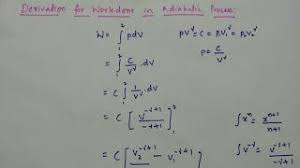 Derivation for Workdone in Adiabatic Process:
W = ∫₁² P dV    PV^γ = C = P₁V₁^γ = P₂V₂^γ
= ∫₁² C/V^γ . dV    P = C/V^γ
= C ∫₁² 1/V^γ . dV
= C [ V^(-γ+1) / (-γ+1) ]₁²    ∫x^n = x^(n+1) / (n+1)
= C [ V₂^(-γ+1) - V₁^(-γ+1)    ∫V^-γ = V^(-γ+1) / (-γ+1)